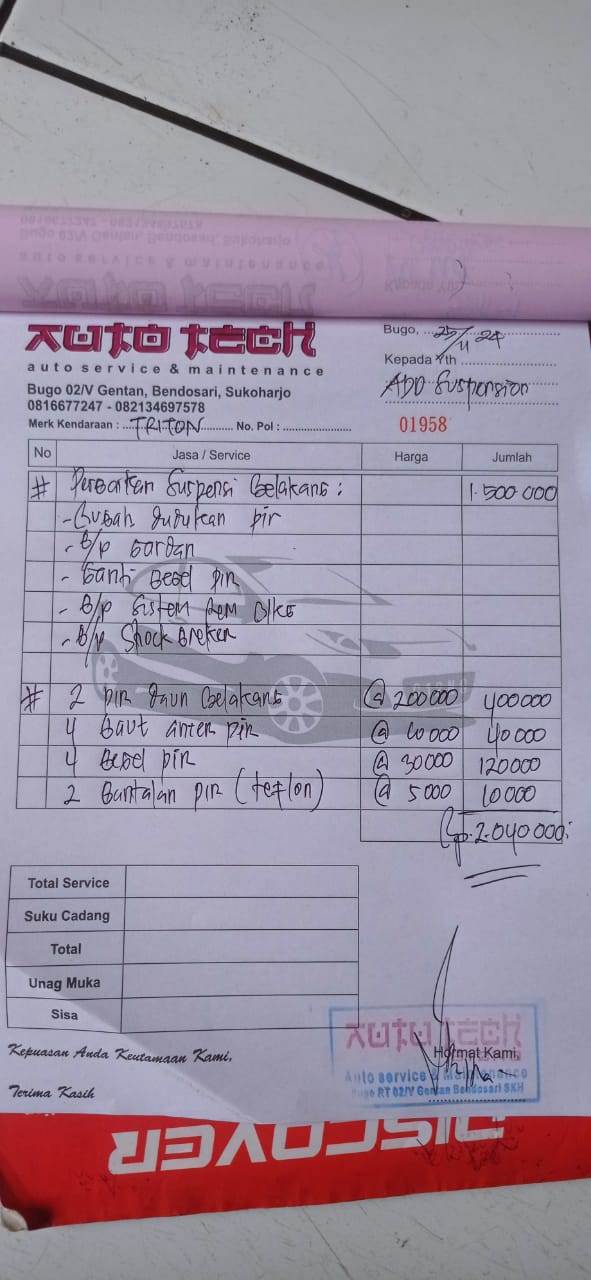 AUTO TECH
auto service & maintenance
Bugo 02/V Gentan, Bendosari, Sukoharjo
0816677247 - 082134697578
Bugo, 25/11 24
Kepada Yth
ADD Suspension
Merk Kendaraan : TRITON No. Pol :
01958
No Jasa / Service Harga Jumlah
# Perbaikan Suspensi Belakang : 1.500 000
- Gubah dudukan pir
- B/p Gardan
- Ganti Begel pir
- B/p Sistem Rem Blkg
- B/p Shock Breker
# 2 pir daun Belakang @ 200000 400000
4 Baut anter pir @ 10000 40000
4 Begel pir @ 30000 120000
2 Bantalan pir (teflon) @ 5000 10000
Rp. 2.040 000;
Total Service
Suku Cadang
Total
Unag Muka
Sisa
Kepuasan Anda Keutamaan Kami,
Terima Kasih
Hormat Kami,
AUTO TECH
Auto service & Maintenance
Bugo RT 02/V Gentan Bendosari SKH
DISCOVER